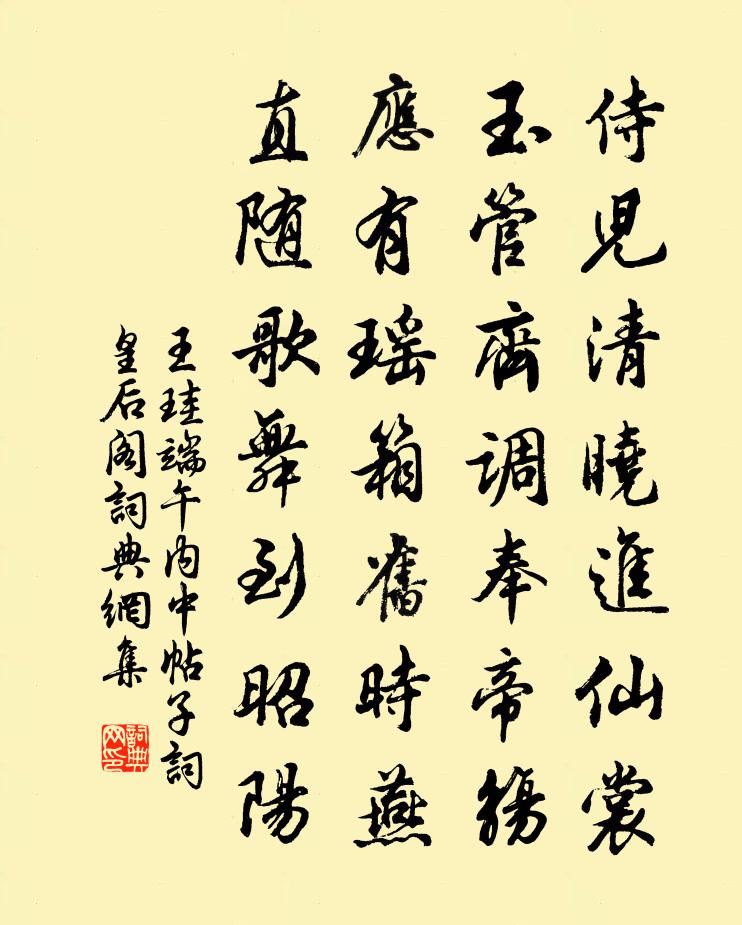 侍児清曉進仙裳
玉管齊調奉帝觴
應有瑶箱舊時燕
直随歌舞到昭陽
王珪端午内中帖子詞
皇后阁詞典網集
詞典网印